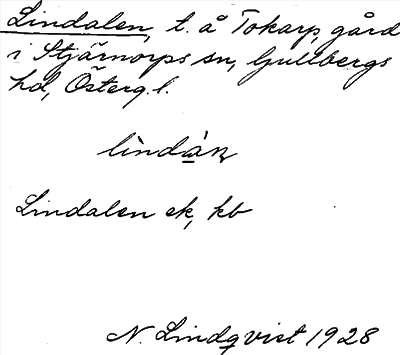 Lindalen, t. å Tokarp, gård
i Stjärnorps sn, Gullbergs
hd, Österg. l.
lìndàn
Lindalen ek, kb
N. Lindqvist 1928